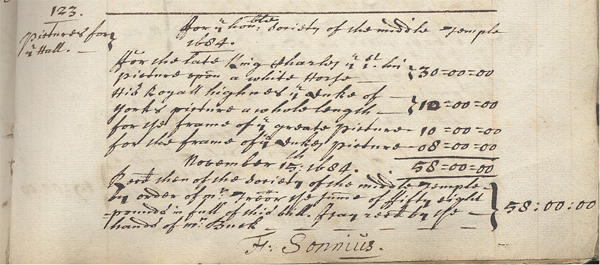 123.
Pictures for
yᵉ Hall.
ffor yᵉ honᵇˡᵉ Society of the middle Temple
1684.
ffor the late King Charles yᵉ 1st. his
picture upon a white Horse — 30=00=00
His Royall highness yᵉ Duke of
Yorks picture a whole length — 10=00=00
for the frame of yᵉ greate picture — 10=00=00
for the frame of yᵉ Dukes picture — 08=00=00
November 15th: 1684. 58=00=00
Recd then of the Society of the middle Temple
by order of mʳ the summe of fifty eight
pounds in full of this bill. I say recd by the 58:00:00
hands of mʳ Buck
Fr: Sonnius.